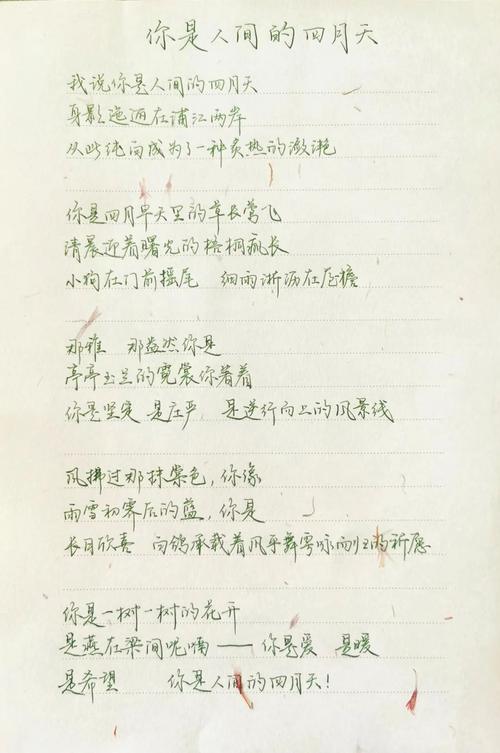 你是人间的四月天
我说你是人间的四月天
身影迤逦在浦江两岸
从此纯白成为了一种炙热的潋滟
你是四月早天里的草长莺飞
清晨迎着曙光的梧桐疯长
小狗在门前摇尾 细雨淅沥在屋檐
那雅 那益然你是
亭亭玉兰的霓裳你著着
你是坚定 是庄严 是逆行向上的风景线
风拂过那抹紫色,你像
雨雪初霁后的蓝,你是
长日欣喜 白鸽承载着风乎舞雩咏而归的祈愿
你是一树一树的花开
是燕在梁间呢喃——你是爱 是暖
是希望 你是人间的四月天!